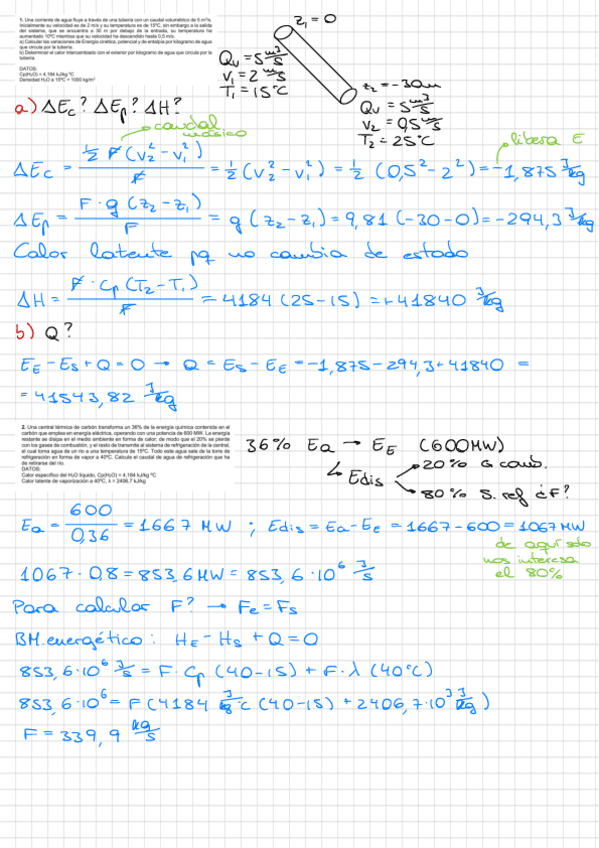 1. Una corriente de agua fluye a través de una tubería con un caudal volumétrico de 5 m³/s.
Inicialmente su velocidad es de 2 m/s y su temperatura es de 15ºC, sin embargo a la salida
del sistema, que se encuentra a 30 m por debajo de la entrada, su temperatura ha
aumentado 10ºC mientras que su velocidad ha descendido hasta 0,5 m/s.
a) Calcular las variaciones de Energía cinética, potencial y de entalpía por kilogramo de agua
que circula por la tubería.
b) Determinar el calor intercambiado con el exterior por kilogramo de agua que circula por la
tubería.
DATOS:
Cp(H₂O) = 4,184 kJ/kg ºC
Densidad H₂O a 15ºC = 1000 kg/m³
z₁ = 0
Qv = 5 m³/s
v₁ = 2 m/s
T₁ = 15ºC
z₂ = -30m
Qv = 5 m³/s
v₂ = 0,5 m/s
T₂ = 25ºC
a) ΔEc? ΔEp? ΔH?
caudal másico
libera E
ΔEc = ½ F (v₂² - v₁²) / F = ½ (v₂² - v₁²) = ½ (0,5² - 2²) = -1,875 J/kg
ΔEp = F · g (z₂ - z₁) / F = g (z₂ - z₁) = 9,81 (-30 - 0) = -294,3 J/kg
Calor latente pq no cambia de estado
ΔH = F · Cp (T₂ - T₁) / F = 4184 (25 - 15) = +41840 J/kg
b) Q?
EE - Es + Q = 0 → Q = Es - EE = -1,875 - 294,3 + 41840 =
= 41543,82 J/kg
2. Una central térmica de carbón transforma un 36% de la energía química contenida en el
carbón que emplea en energía eléctrica, operando con una potencia de 600 MW. La energía
restante se disipa en el medio ambiente en forma de calor; de modo que el 20% se pierde
con los gases de combustión, y el resto de transmite al sistema de refrigeración de la central,
el cual toma agua de un río a una temperatura de 15ºC. Todo este agua sale de la torre de
refrigeración en forma de vapor a 40ºC. Calcula el caudal de agua de refrigeración que ha
de retirarse del río.
DATOS:
Calor específico del H₂O líquido, Cp(H₂O) = 4,184 kJ/kg ºC
Calor latente de vaporización a 40ºC, λ = 2406,7 kJ/kg
36% Ea → EE (600MW)
↳ Edis → 20% G comb.
→ 80% S. ref ¿F?
Ea = 600 / 0,36 = 1667 MW ; Edis = Ea - EE = 1667 - 600 = 1067 MW
de aquí solo
nos interesa
el 80%
1067 · 0,8 = 853,6 MW = 853,6 · 10⁶ J/s
Para calcular F? → Fe = Fs
BM. energético: HE - Hs + Q = 0
853,6 · 10⁶ J/s = F · Cp (40 - 15) + F · λ (40ºC)
853,6 · 10⁶ = F (4184 J/kg ºC (40 - 15) + 2406,7 · 10³ J/kg)
F = 339,9 kg/s